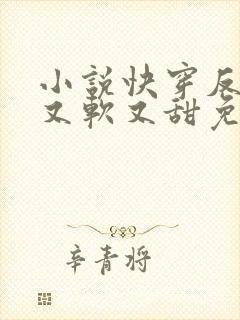 小説快穿反
又軟又甜免
辛青将